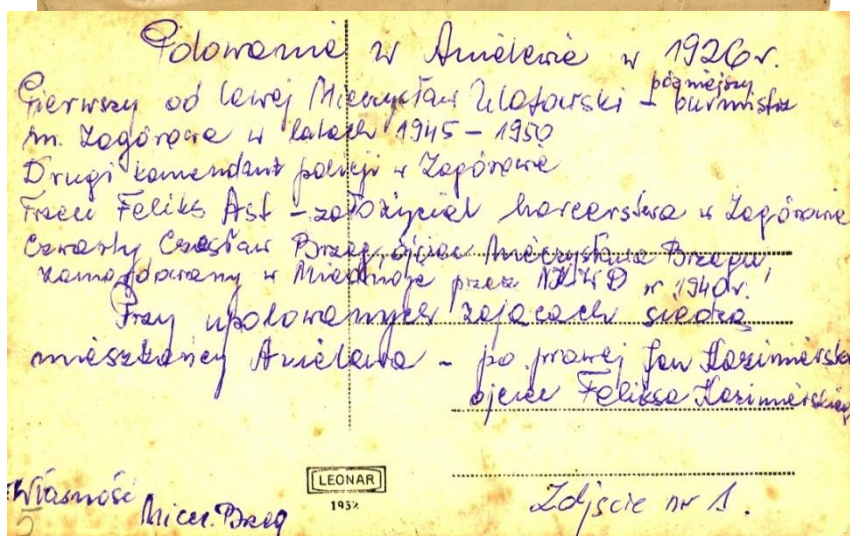 Polowanie w Anielewie w 1926 r.
Pierwszy od lewej Mieczysław Ulatowski – późniejszy burmistrz
m. Zagórowa w latach 1945 – 1950
Drugi komendant policji w Zagórowie
Trzeci Feliks Ast – założyciel harcerstwa w Zagórowie
Czwarty Czesław Brzęg, ojciec Mieczysława Brzęgu,
zamordowany w Miednoje przez NKWD w 1940 r.
Przy upolowanych zającach siedzą
mieszkańcy Anielewa – po prawej Jan Kazimierski
ojciec Feliksa Kazimierskiego
LEONAR
1932
Własność
5 Miecz. Brzęg
Zdjęcie nr 1.